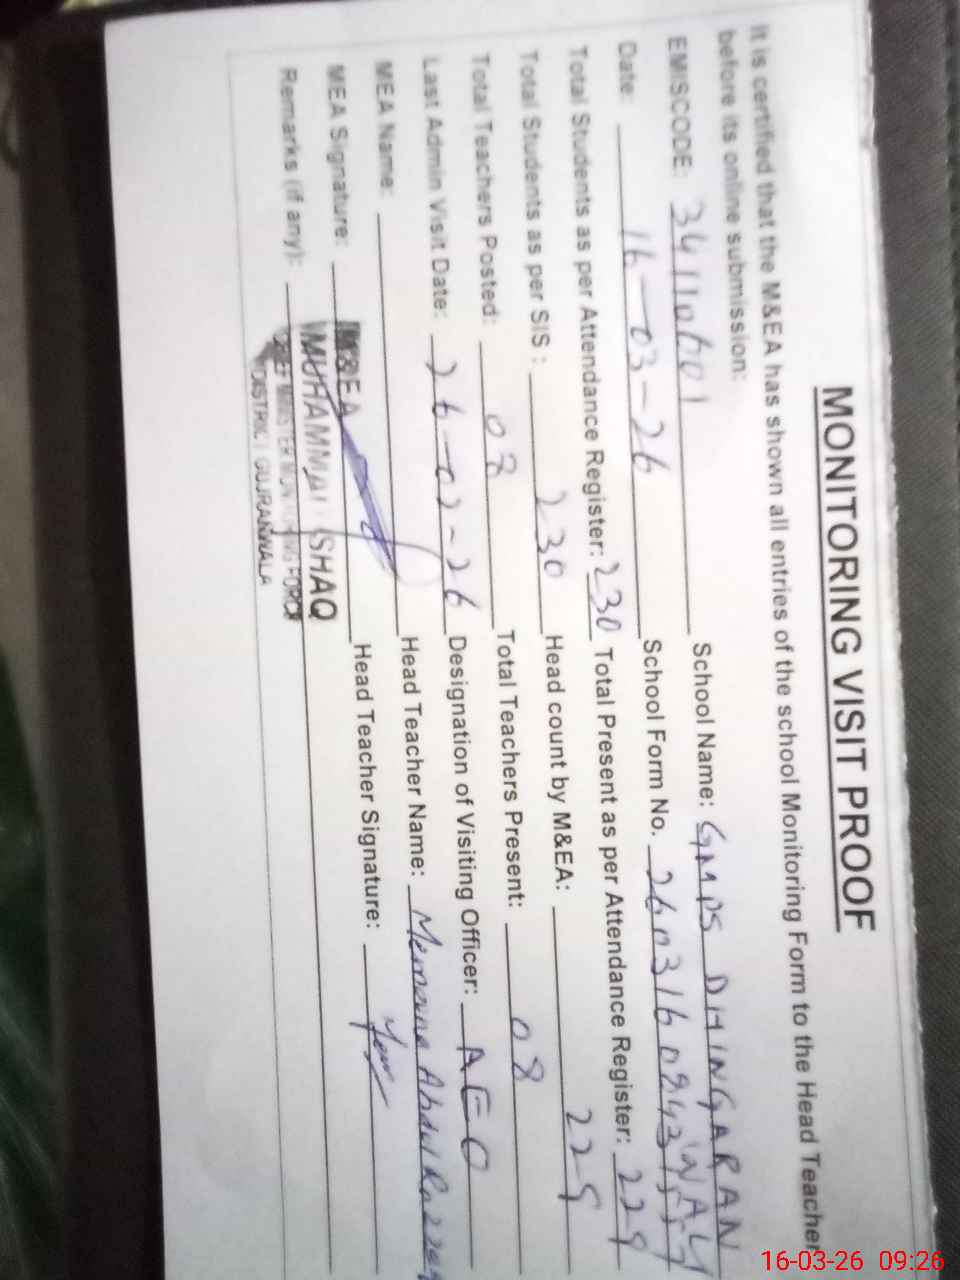 MONITORING VISIT PROOF
It is certified that the M&EA has shown all entries of the school Monitoring Form to the Head Teacher
before its online submission:
EMISCODE: 34110601 School Name: GMPS DHINGARAN WALI
Date: 16-03-26 School Form No. 260316094
Total Students as per Attendance Register: 230 Total Present as per Attendance Register: 229
Total Students as per SIS : 230 Head count by M&EA: 229
Total Teachers Posted: 08 Total Teachers Present: 08
Last Admin Visit Date: 26-02-26 Designation of Visiting Officer: AEO
MEA Name: Head Teacher Name: Memona Abdul
MEA Signature: Head Teacher Signature:
Remarks (if any):
M&EA
MUHAMMAD ISHAQ
CHIEF MINISTER MONITORING FORCE
DISTRICT GUJRANWALA
16-03-26 09:26